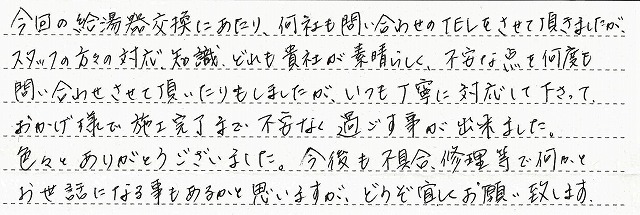 今回の給湯器交換にあたり、何社も問い合わせのTELをさせて頂きましたが、
スタッフの方々の対応、知識、どれも貴社が素晴らしく、不安な点を何度も
問い合わせさせて頂いたりもしましたが、いつも丁寧に対応して下さって、
おかげ様で施工完了まで不安なく過ごす事が出来ました。
色々とありがとうございました。今後も不具合、修理等で何かと
お世話になる事もあるかと思いますが、どうぞ宜しくお願い致します。